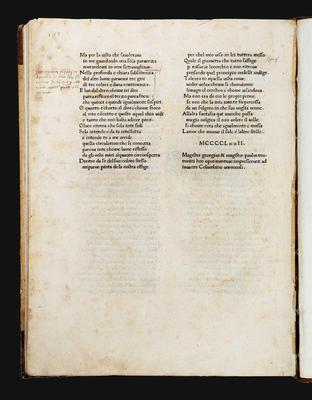 Ma per la uista che sauuloraua
in me guardando una sola paruenza
mutandomi io ame si trauagliaua
Nella profonda e chiara subsistenza
del alto lume paruemi tre giri
di tre colori e duna contenenza
E lun dalaltro chome iri da iri
parea reflexo el terzo parea foco
che quinci e quindi igualmente si spiri
O quanto e chorto il dire e chome fioco
al mio concetto e questo aquel chio uidi
e tanto che non basta adicer poco
O luce eterna che sola inte sidi
Sola intendi e da te intelletta
e intendente te ame arride
quella circulation che si concetta
pareua inte chome lume reflesso
da gli ochi miei alquanto circonspetta
Dentro da se delsuo colore stesso
mi parue pinta dela nostra effige
per chel mio uiso in lei tuttera messo
Qual e il geometra che tutto saffige
per misurar lo cerchio e non ritroua
pensando quel principio ondelli indige
Tal era io aquella uista noua
ueder uolea chome si conuenne
limago al cerchio e chome uisindoua
Ma non era da cio le proprie penne
se non che la mia mente fu percossa
da un fulgore in che sua uoglia uenne
Allalta fantasia qui mancho possa
ma gia uolgeua il mio disiro el uelle
si chome rota che igualmente e mossa
Lamor che muoue il sole e laltre stelle
MCCCCLxxII.
Magister georgius & magister paulus teu-
tonici hoc opus mantuae impresserunt ad
iuuante Columbino ueronensi.